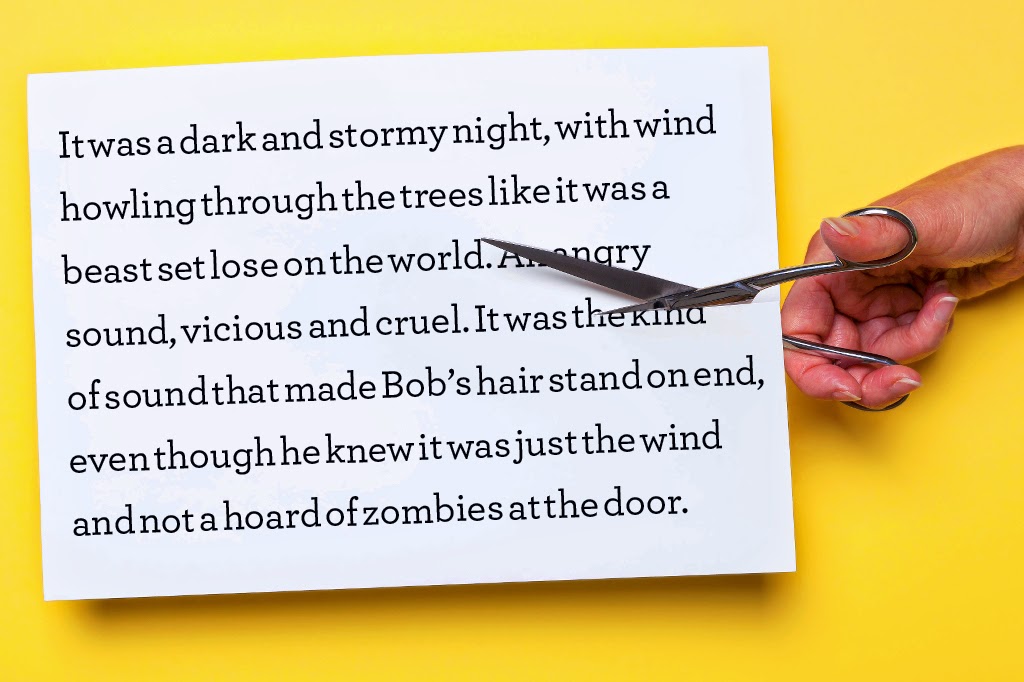 It was a dark and stormy night, with wind
howling through the trees like it was a
beast set lose on the world. An angry
sound, vicious and cruel. It was the kind
of sound that made Bob’s hair stand on end,
even though he knew it was just the wind
and not a hoard of zombies at the door.